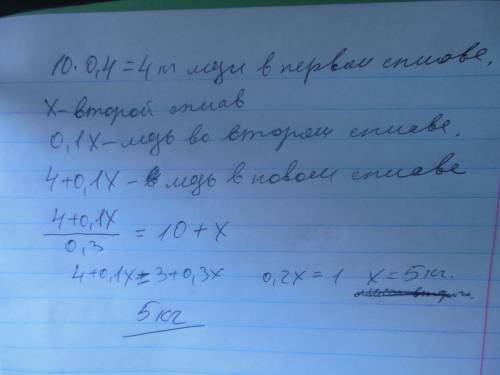 10·0,4=4 кг меди в первом сплаве.
х-второй сплав
0,1х-медь во втором сплаве.
4+0,1х- медь в новом сплаве
4+0,1х
/ 0,3 = 10+х
4+0,1х=3+0,3х 0,2х=1 х=5кг.
5кг